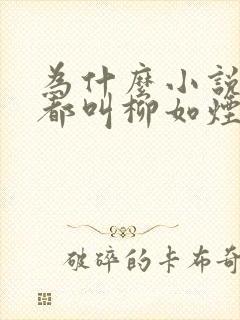 為什麼小說
都叫柳如煙
破碎的卡布奇